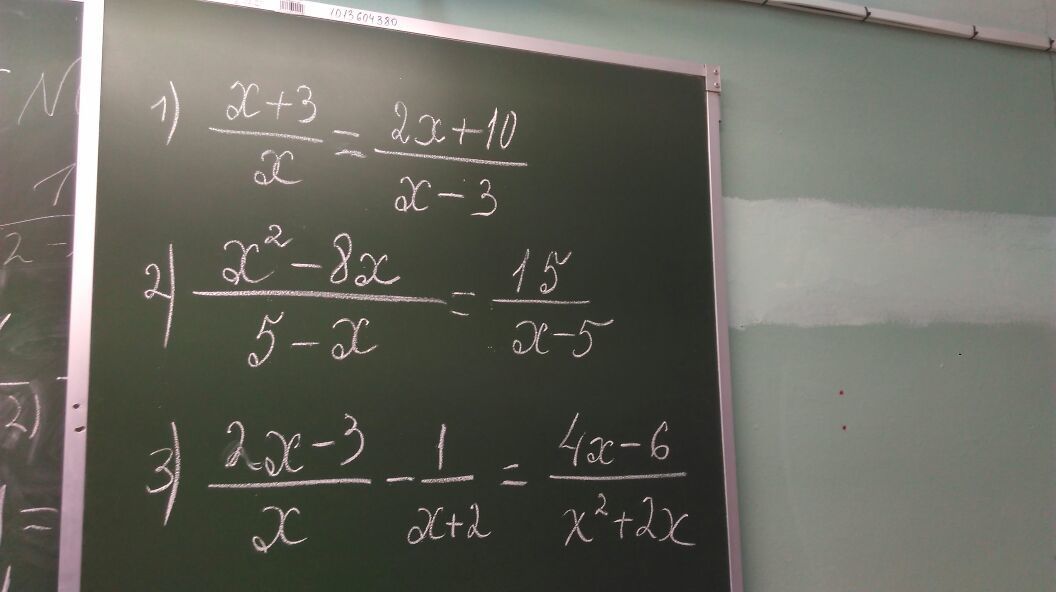 1013604380
1) (x+3)/x = (2x+10)/(x-3)
2) (x²-8x)/(5-x) = 15/(x-5)
3) (2x-3)/x - 1/(x+2) = (4x-6)/(x²+2x)